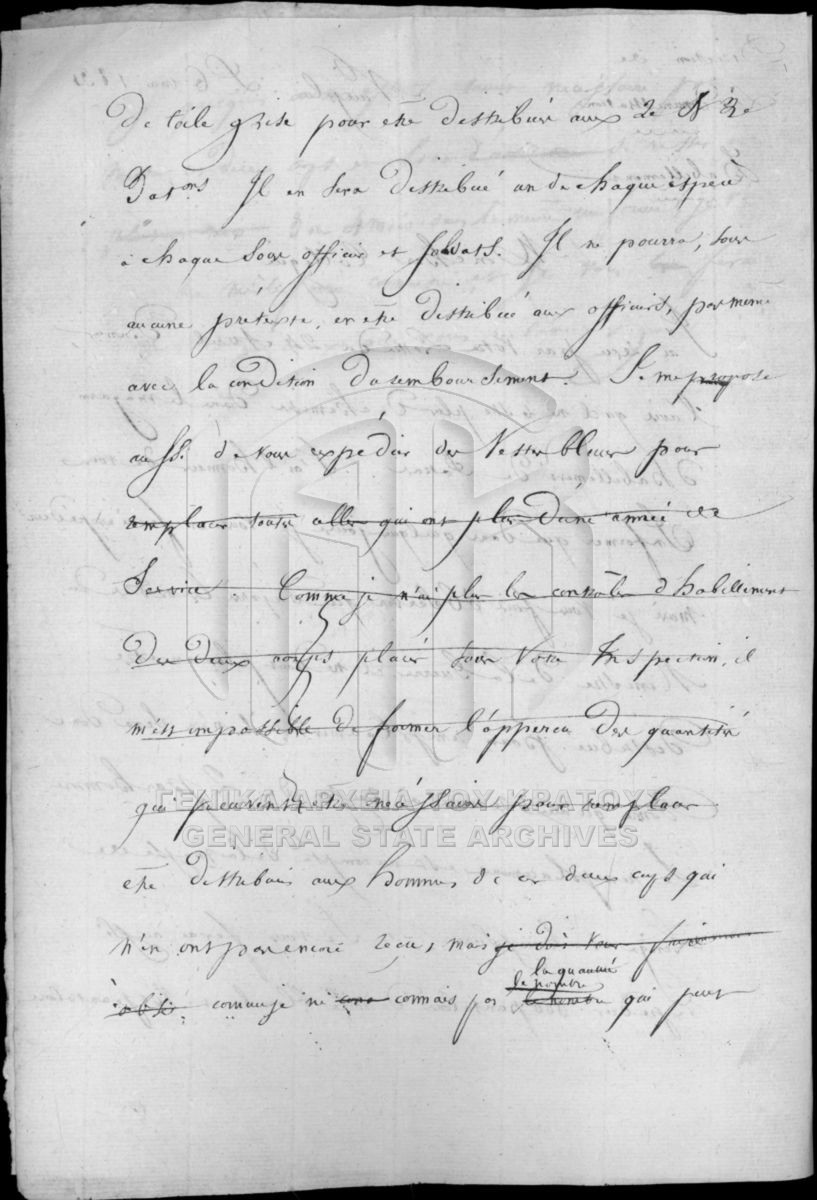 De toile grise pour être distribués aux 2e & 3e
Bat.ons Il en sera distribué un de chaque espèce
à chaque sous officier et soldats. Il ne pourra, sous
aucune prétexte, en être distribué aux officiers, pas même
avec la condition du remboursement. Je me propose
aussi de vous expédier des vestes bleues pour
remplacer toutes celles qui ont plus d'une année de
Service. Comme je n'ai plus les contrôles d'habillement
des deux corps placés sous votre Inspection, il
m'est impossible de former l'apperçu des quantités
qui peuvent être nécéssaires pour remplacer
être distribués aux hommes de ces deux corps qui
n'en ont pas encore reçus, mais je dois vous faire
comme je ne connais pas
la quantité
le nombre
le nombre qui peut
ΓΕΝΙΚΑ ΑΡΧΕΙΑ ΤΟΥ ΚΡΑΤΟΥΣ
GENERAL STATE ARCHIVES